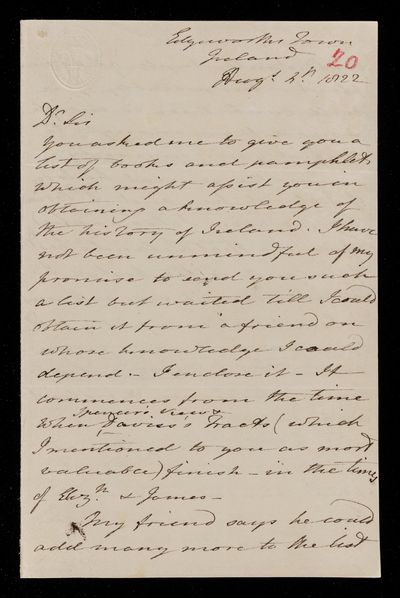 Edgeworths Town
Ireland
20
Augt. 2d. 1822
Dr. Sir
You asked me to give you a
list of books and pamphlets
which might assist you in
obtaining a knowledge of
the history of Ireland. I have
not been unmindful of my
promise to send you such
a list but waited till I could
obtain it from a friend on
whose knowledge I could
depend - I enclose it - It
commences from the time
Spencer's views
when Davies's Tracts (which
I mentioned to you as most
valuable) finish - in the times
of Elizth. & James -
My friend says he could
add many more to the list